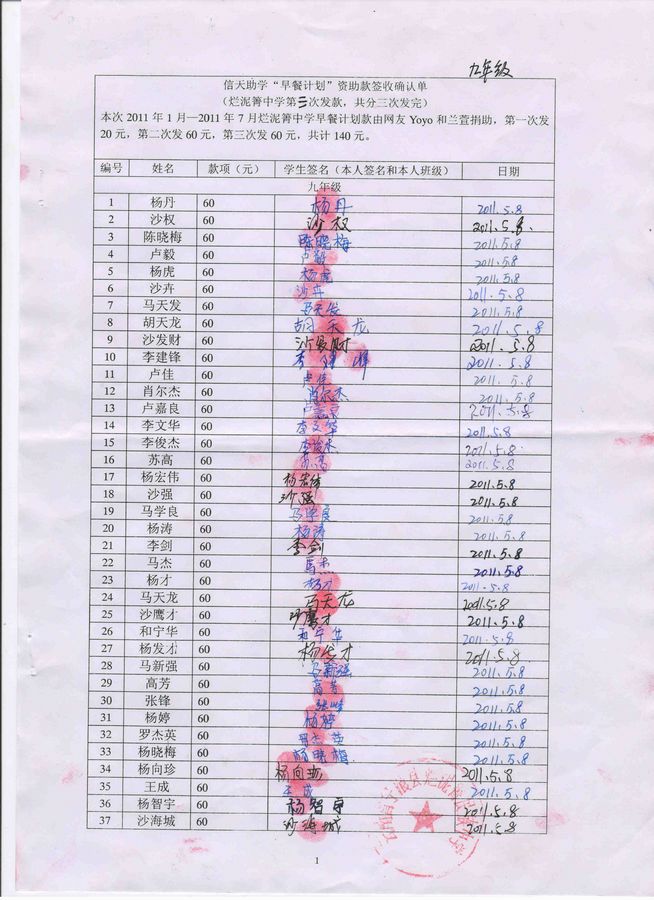 九年级
信天助学“早餐计划”资助款签收确认单
（烂泥箐中学第三次发款，共分三次发完）
本次 2011 年 1 月—2011 年 7 月烂泥箐中学早餐计划款由网友 Yoyo 和兰萱捐助，第一次发
20 元，第二次发 60 元，第三次发 60 元，共计 140 元。
编号 姓名 款项（元） 学生签名（本人签名和本人班级） 日期
九年级
1 杨丹 60 杨丹 2011.5.8
2 沙权 60 沙权 2011.5.8.
3 陈晓梅 60 陈晓梅 2011.5.8
4 卢毅 60 卢毅 2011.5.8
5 杨虎 60 杨虎 2011.5.8
6 沙卉 60 沙卉 2011.5.8
7 马天发 60 马天发 2011.5.8
8 胡天龙 60 胡天龙 2011.5.8
9 沙发财 60 沙发财 2011.5.8
10 李建锋 60 李建峰 2011.5.8
11 卢佳 60 卢佳 2011.5.8
12 肖尔杰 60 肖尔杰 2011.5.8
13 卢嘉良 60 卢嘉良 2011.5.8
14 李文华 60 李文华 2011.5.8
15 李俊杰 60 李俊杰 2011.5.8
16 苏高 60 苏高 2011.5.8
17 杨宏伟 60 杨宏伟 2011.5.8
18 沙强 60 沙强 2011.5.8
19 马学良 60 马学良 2011.5.8
20 杨涛 60 杨涛 2011.5.8
21 李剑 60 李剑 2011.5.8
22 马杰 60 馬杰 2011.5.8
23 杨才 60 杨才 2011.5.8
24 马天龙 60 马天龙 2011.5.8
25 沙鹰才 60 沙鹰才 2011.5.8
26 和宁华 60 和宁华 2011.5.8
27 杨发才 60 杨发才 2011.5.8
28 马新强 60 马新强 2011.5.8
29 高芳 60 高芳 2011.5.8
30 张锋 60 张峰 2011.5.8
31 杨婷 60 杨婷 2011.5.8
32 罗杰英 60 罗杰英 2011.5.8
33 杨晓梅 60 杨晓梅 2011.5.8
34 杨向珍 60 杨向珍 2011.5.8
35 王成 60 王成 2011.5.8
36 杨智宇 60 杨智宇 2011.5.8
37 沙海城 60 沙海城 2011.5.8
1